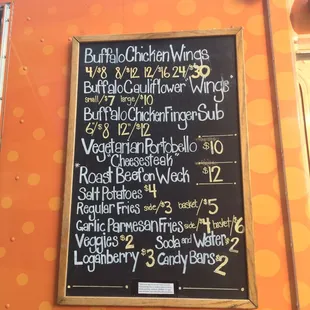 Buffalo Chicken Wings
4/$8 8/$12 12/$16 24/$30
Buffalo Cauliflower "Wings"
small/$7 large/$10
Buffalo Chicken Finger Sub
6"/$8 12"/$12
Vegetarian Portobello $10
"Cheesesteak"
*Roast Beef on Weck $12
Salt Potatoes $4
Regular Fries side/$3 basket/$5
Garlic Parmesan Fries side/$4 basket/$6
Veggies $2 Soda and Water $2
Loganberry $3 Candy Bars $2